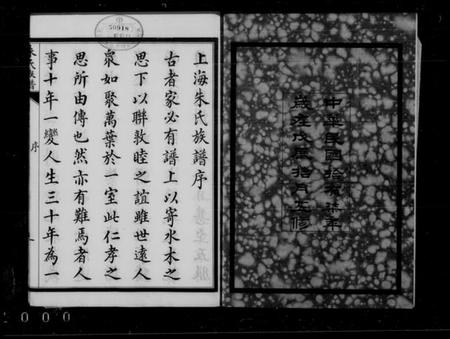 中華民國拾有柒年
歲在戊辰拾月五修
上海朱氏族譜序
古者家必有譜上以寄水木之
思下以聯敦睦之誼雖世遠人
衆如聚萬葉於一室此仁孝之
思所由傳也然亦有難焉者人
事十年一變人生三十年為一
朱氏族譜
序
50918
000